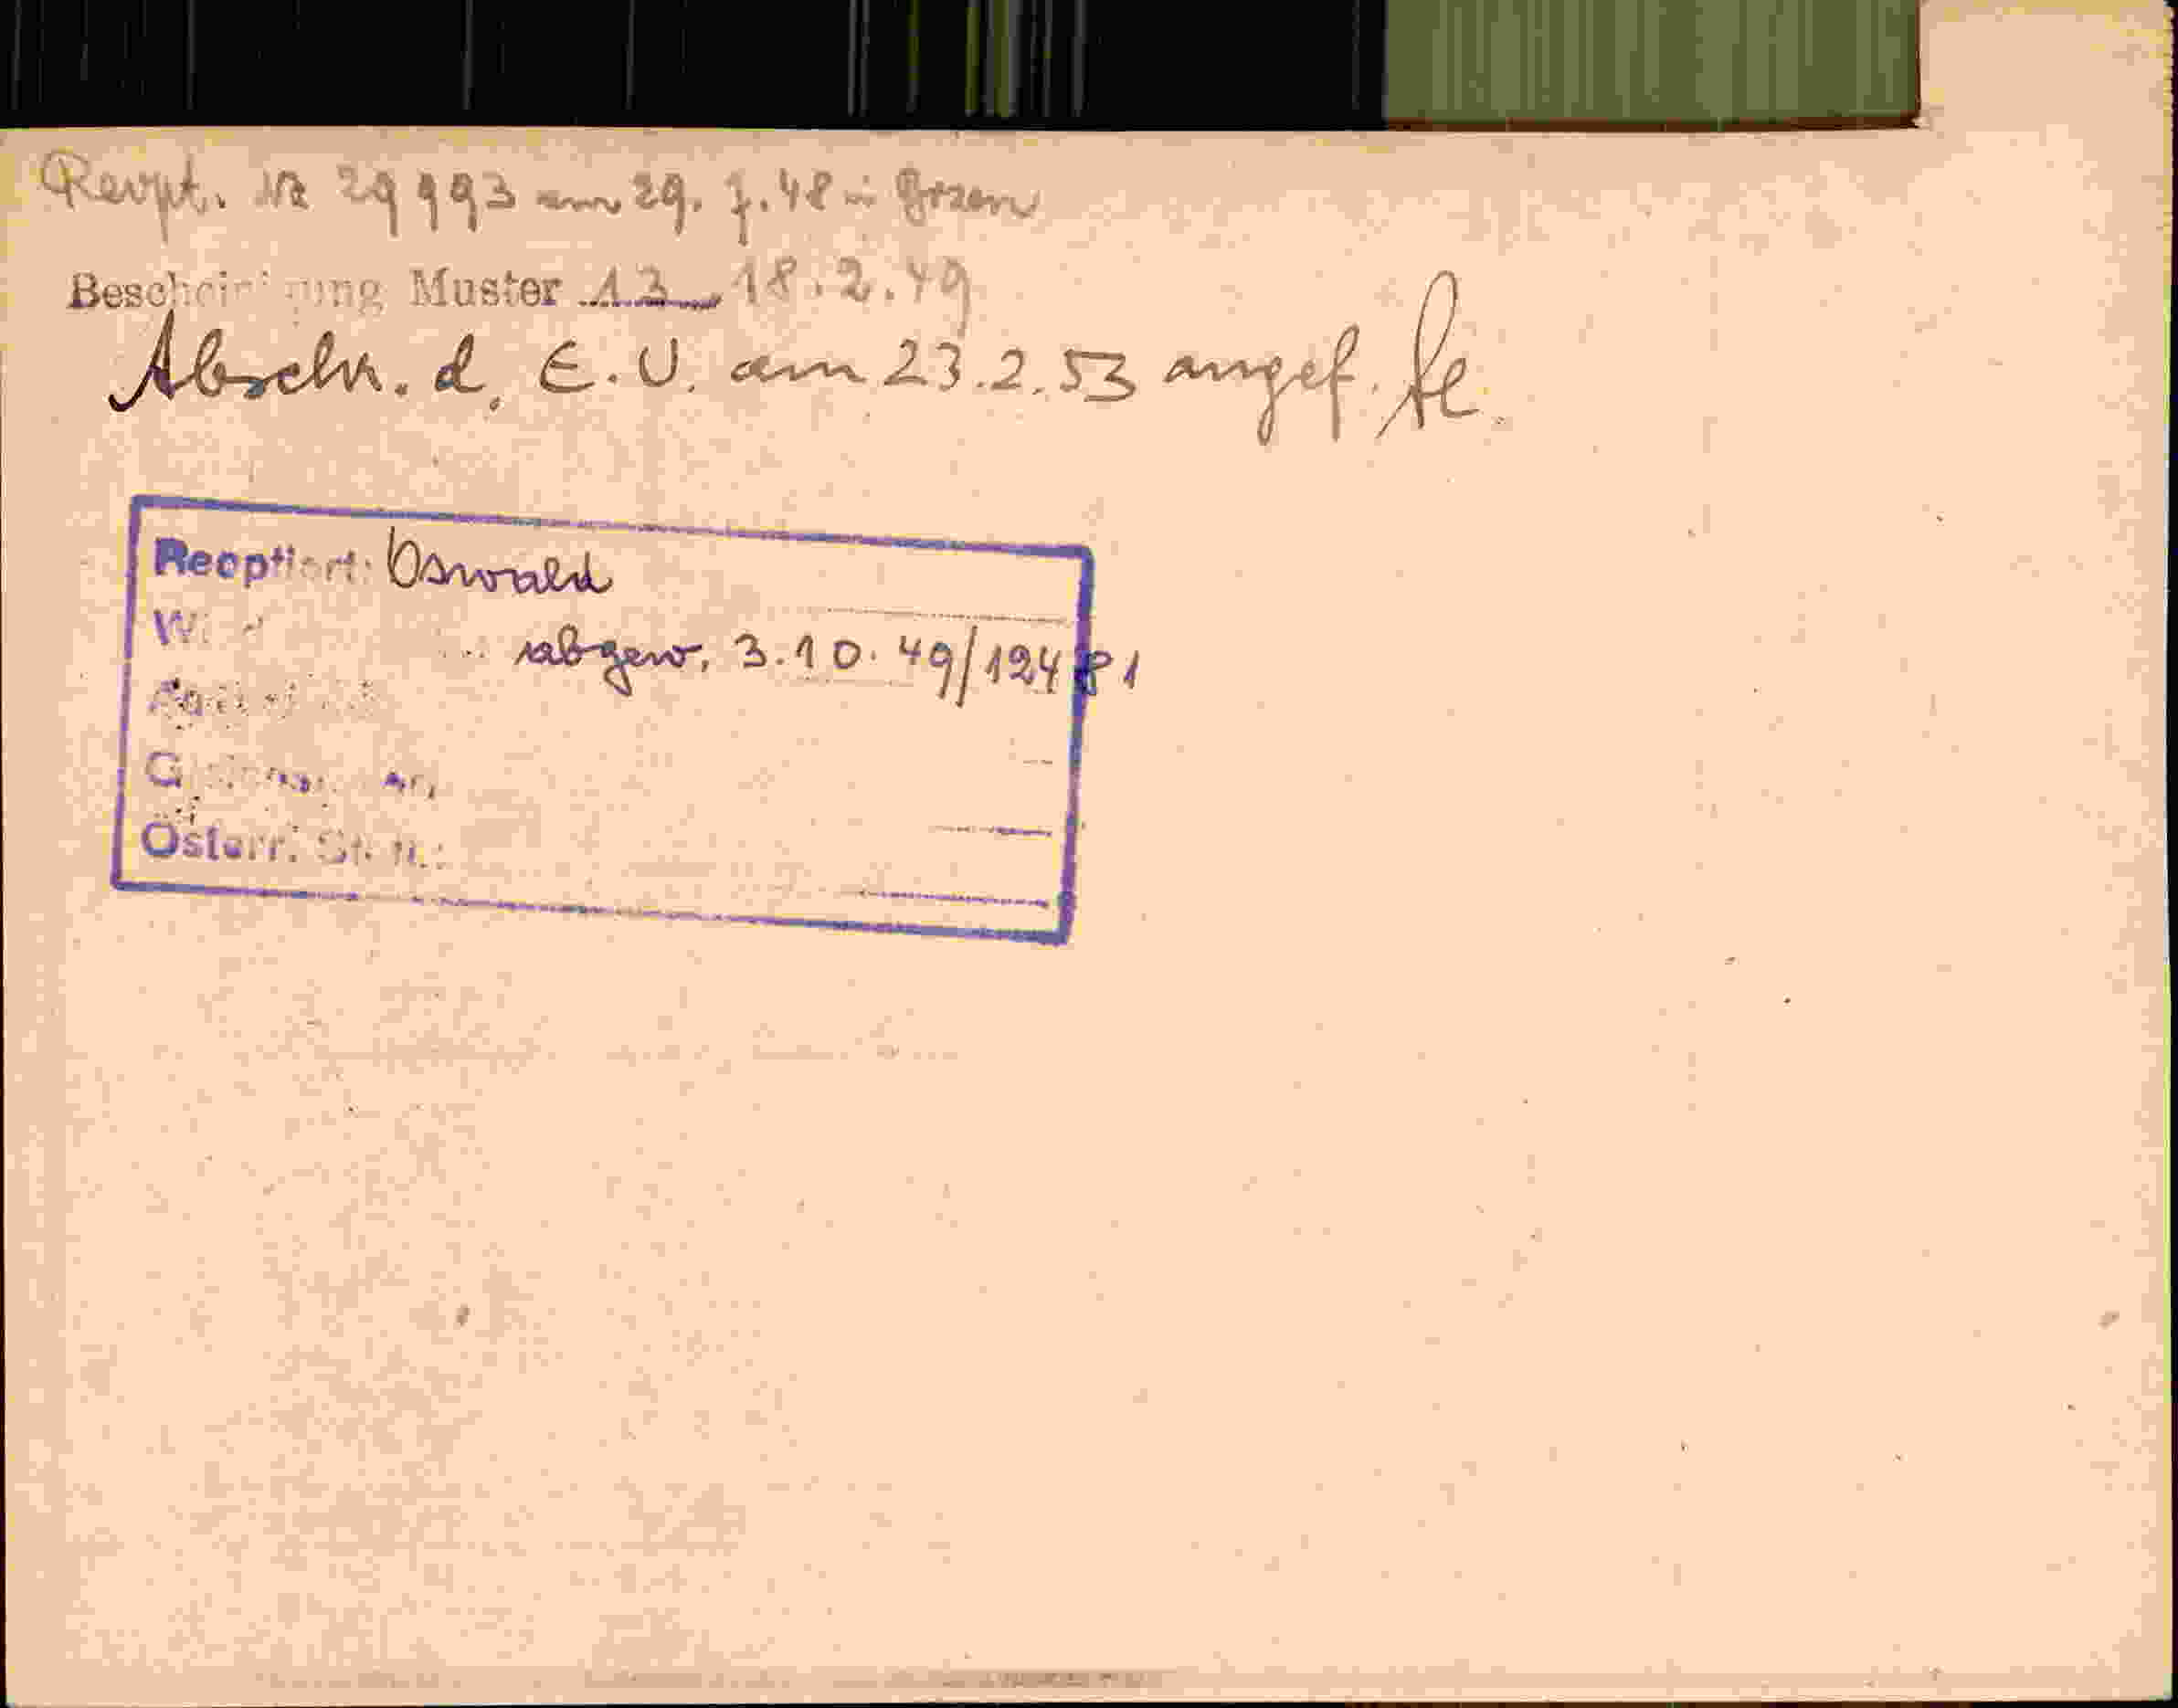 Reopt. Nr 29993 am 29. 7. 48 in Bozen
Bescheinigung Muster 13 18.2.49
Abschr. d. E.U. am 23.2.53 angef.
Reoptiert: Oswald
abgew. 3.10.49/12481
Österr. St.